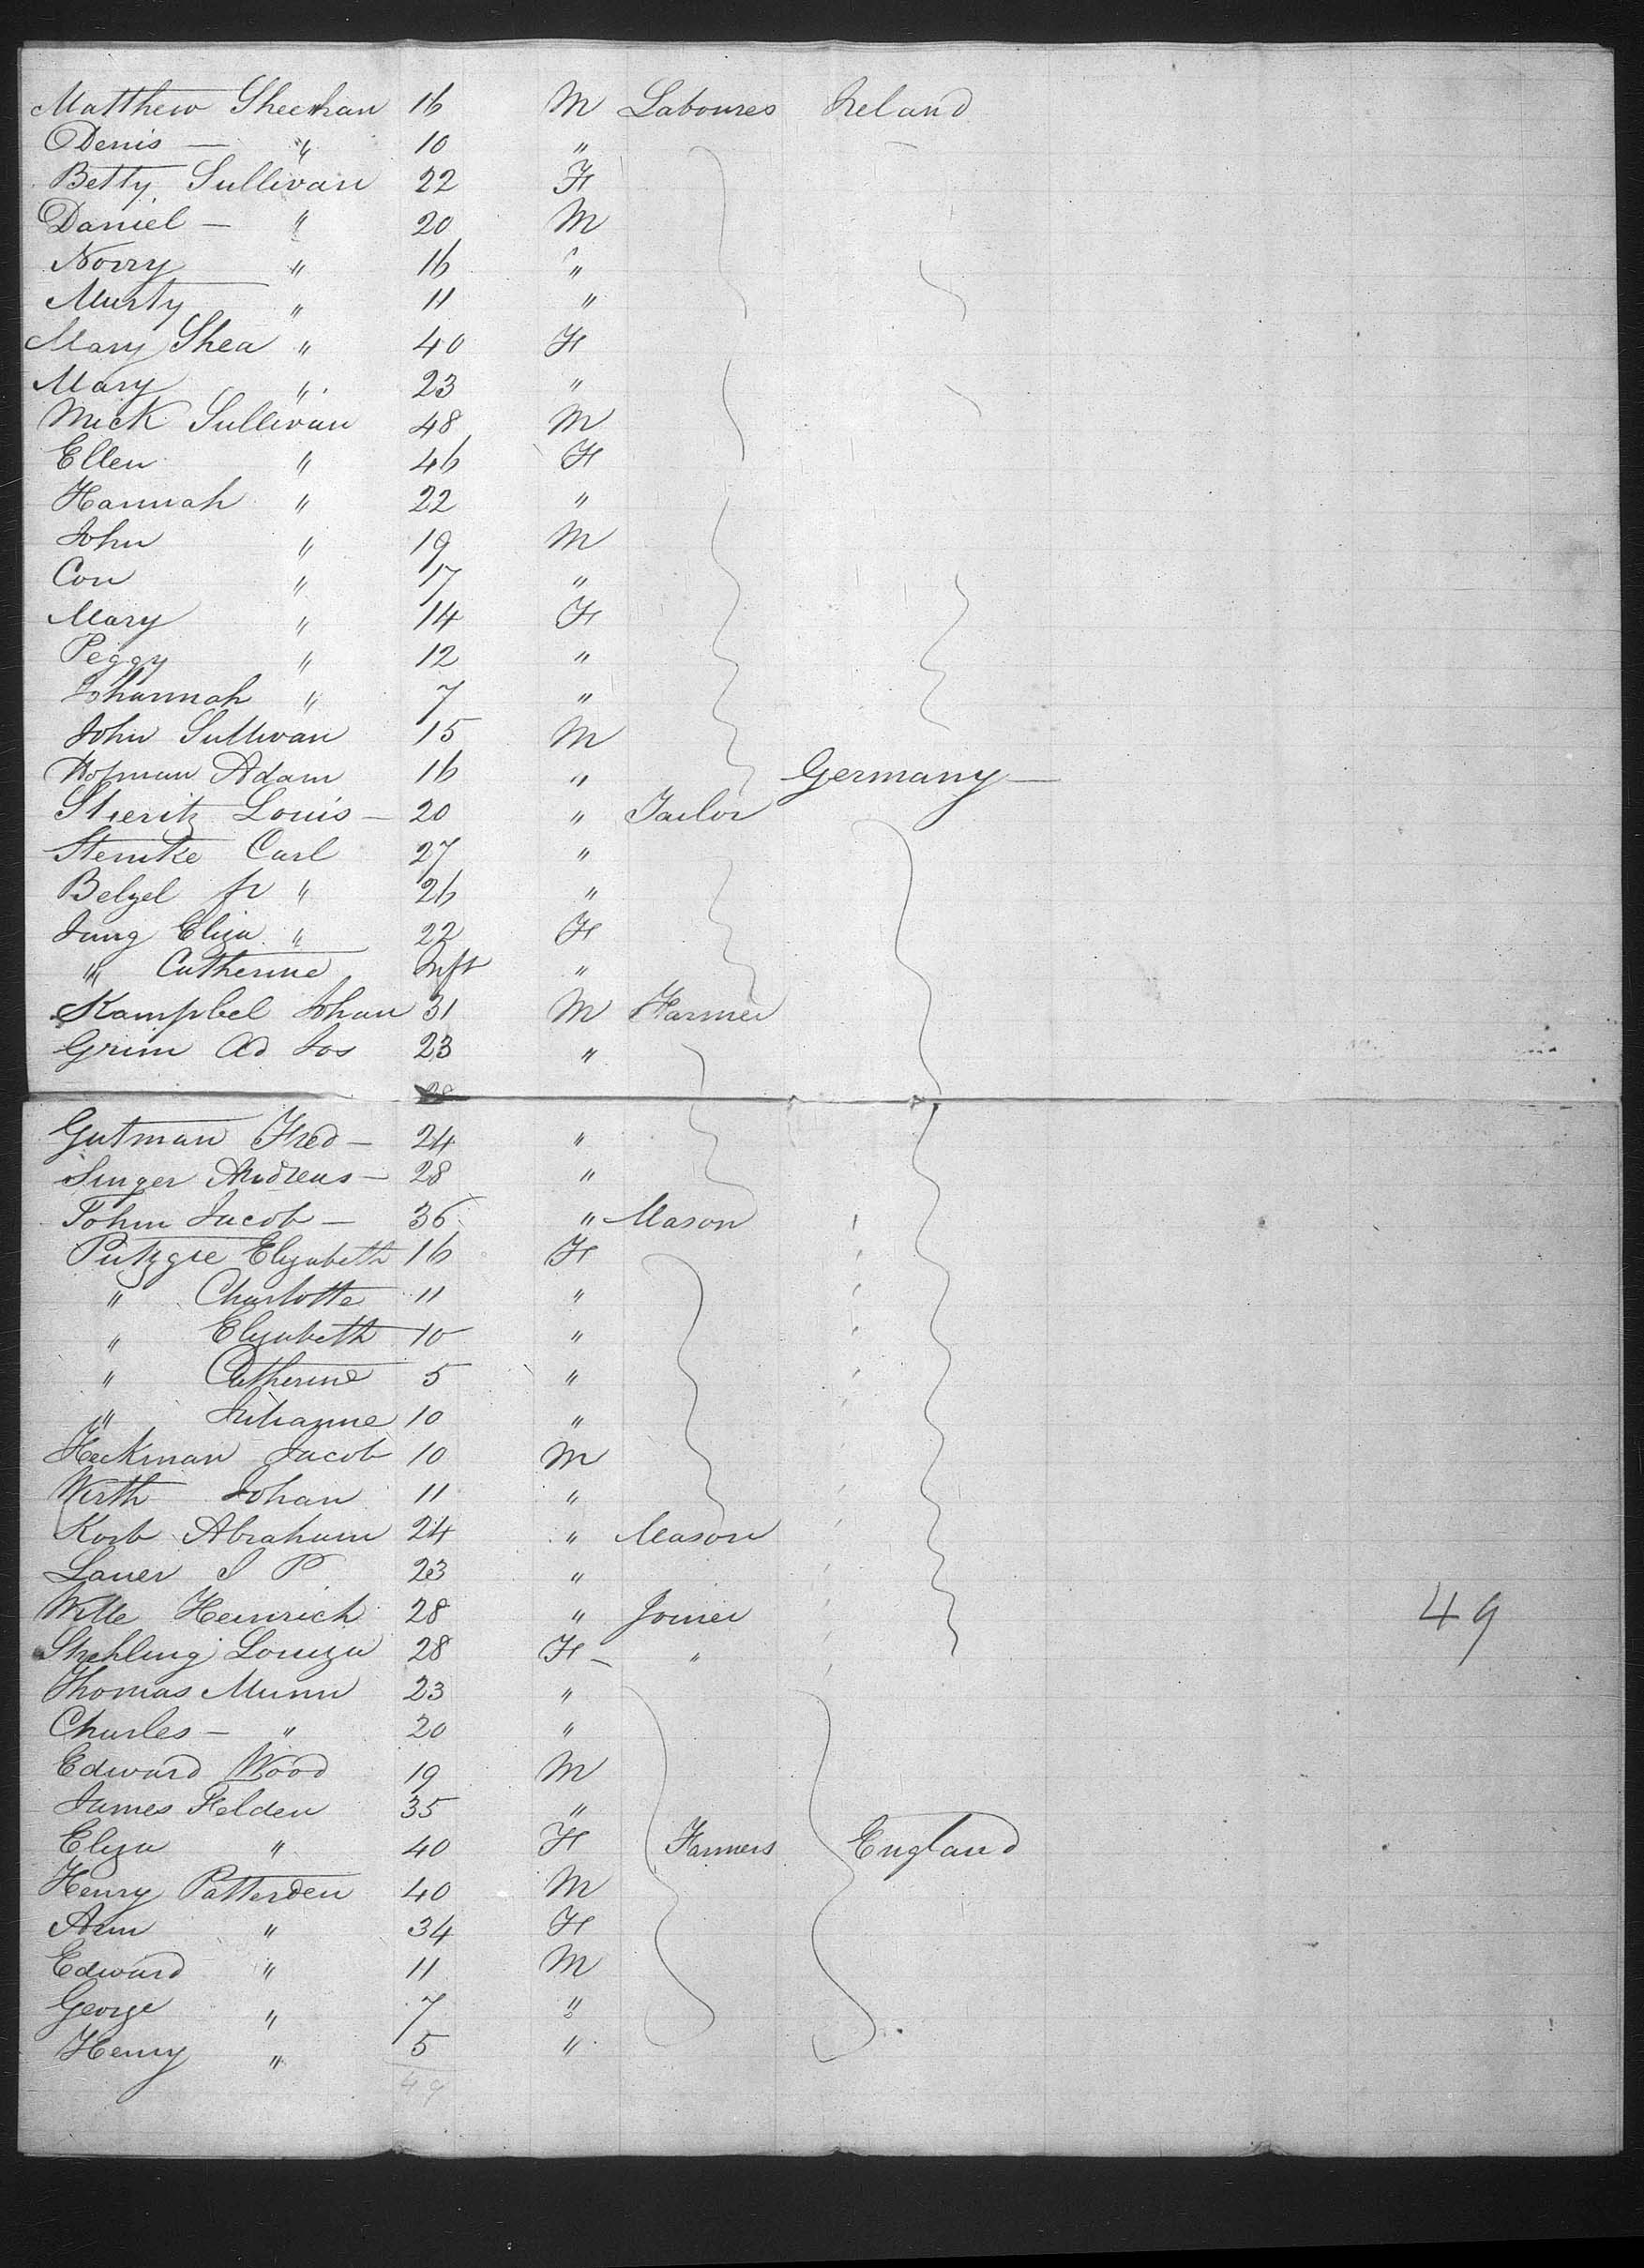 Matthew Sheehan 16 M Laboures Ireland
Denis — " 10 "
Betty Sullivan 22 F
Daniel — " 20 M
Norry " 16 "
Murty " 11 "
Mary Shea " 40 F
Mary " 23 "
Mick Sullivan 48 M
Ellen " 46 F
Hannah " 22 "
John " 19 M
Con " 17 "
Mary " 14 F
Peggy " 12 "
Johannah " 7 "
John Sullivan 15 M
Hofman Adam 16 " Germany —
Louis — 20 " Tailor
Carl 27 "
Belzel fr " 26 "
Jung Eliza " 22 F
" Catherine Inft "
Kampbel Johan 31 M Farmer
Grim Ad Jos 23 "
28
Gutman Fred — 24 "
Singer Andreas — 28 "
Tohm Jacob — 36 " Mason
Elizabeth 16 F
" Charlotte 11 "
" Elizabeth 10 "
" Catherine 5 "
" Julianne 10 "
Heckman Jacob 10 M
Wirth Johan 11 "
Korb Abraham 24 " Mason
Lauer J P 23 "
Wille Heinrich 28 " Joiner 49
Louiza 28 F — "
Thomas Munn 23 "
Charles — " 20 "
Edward Wood 19 M
James Felden 35 "
Eliza " 40 F Farmers England
Henry Patterden 40 M
Ann " 34 F
Edward " 11 M
George " 7 "
Henry " 5 "
49